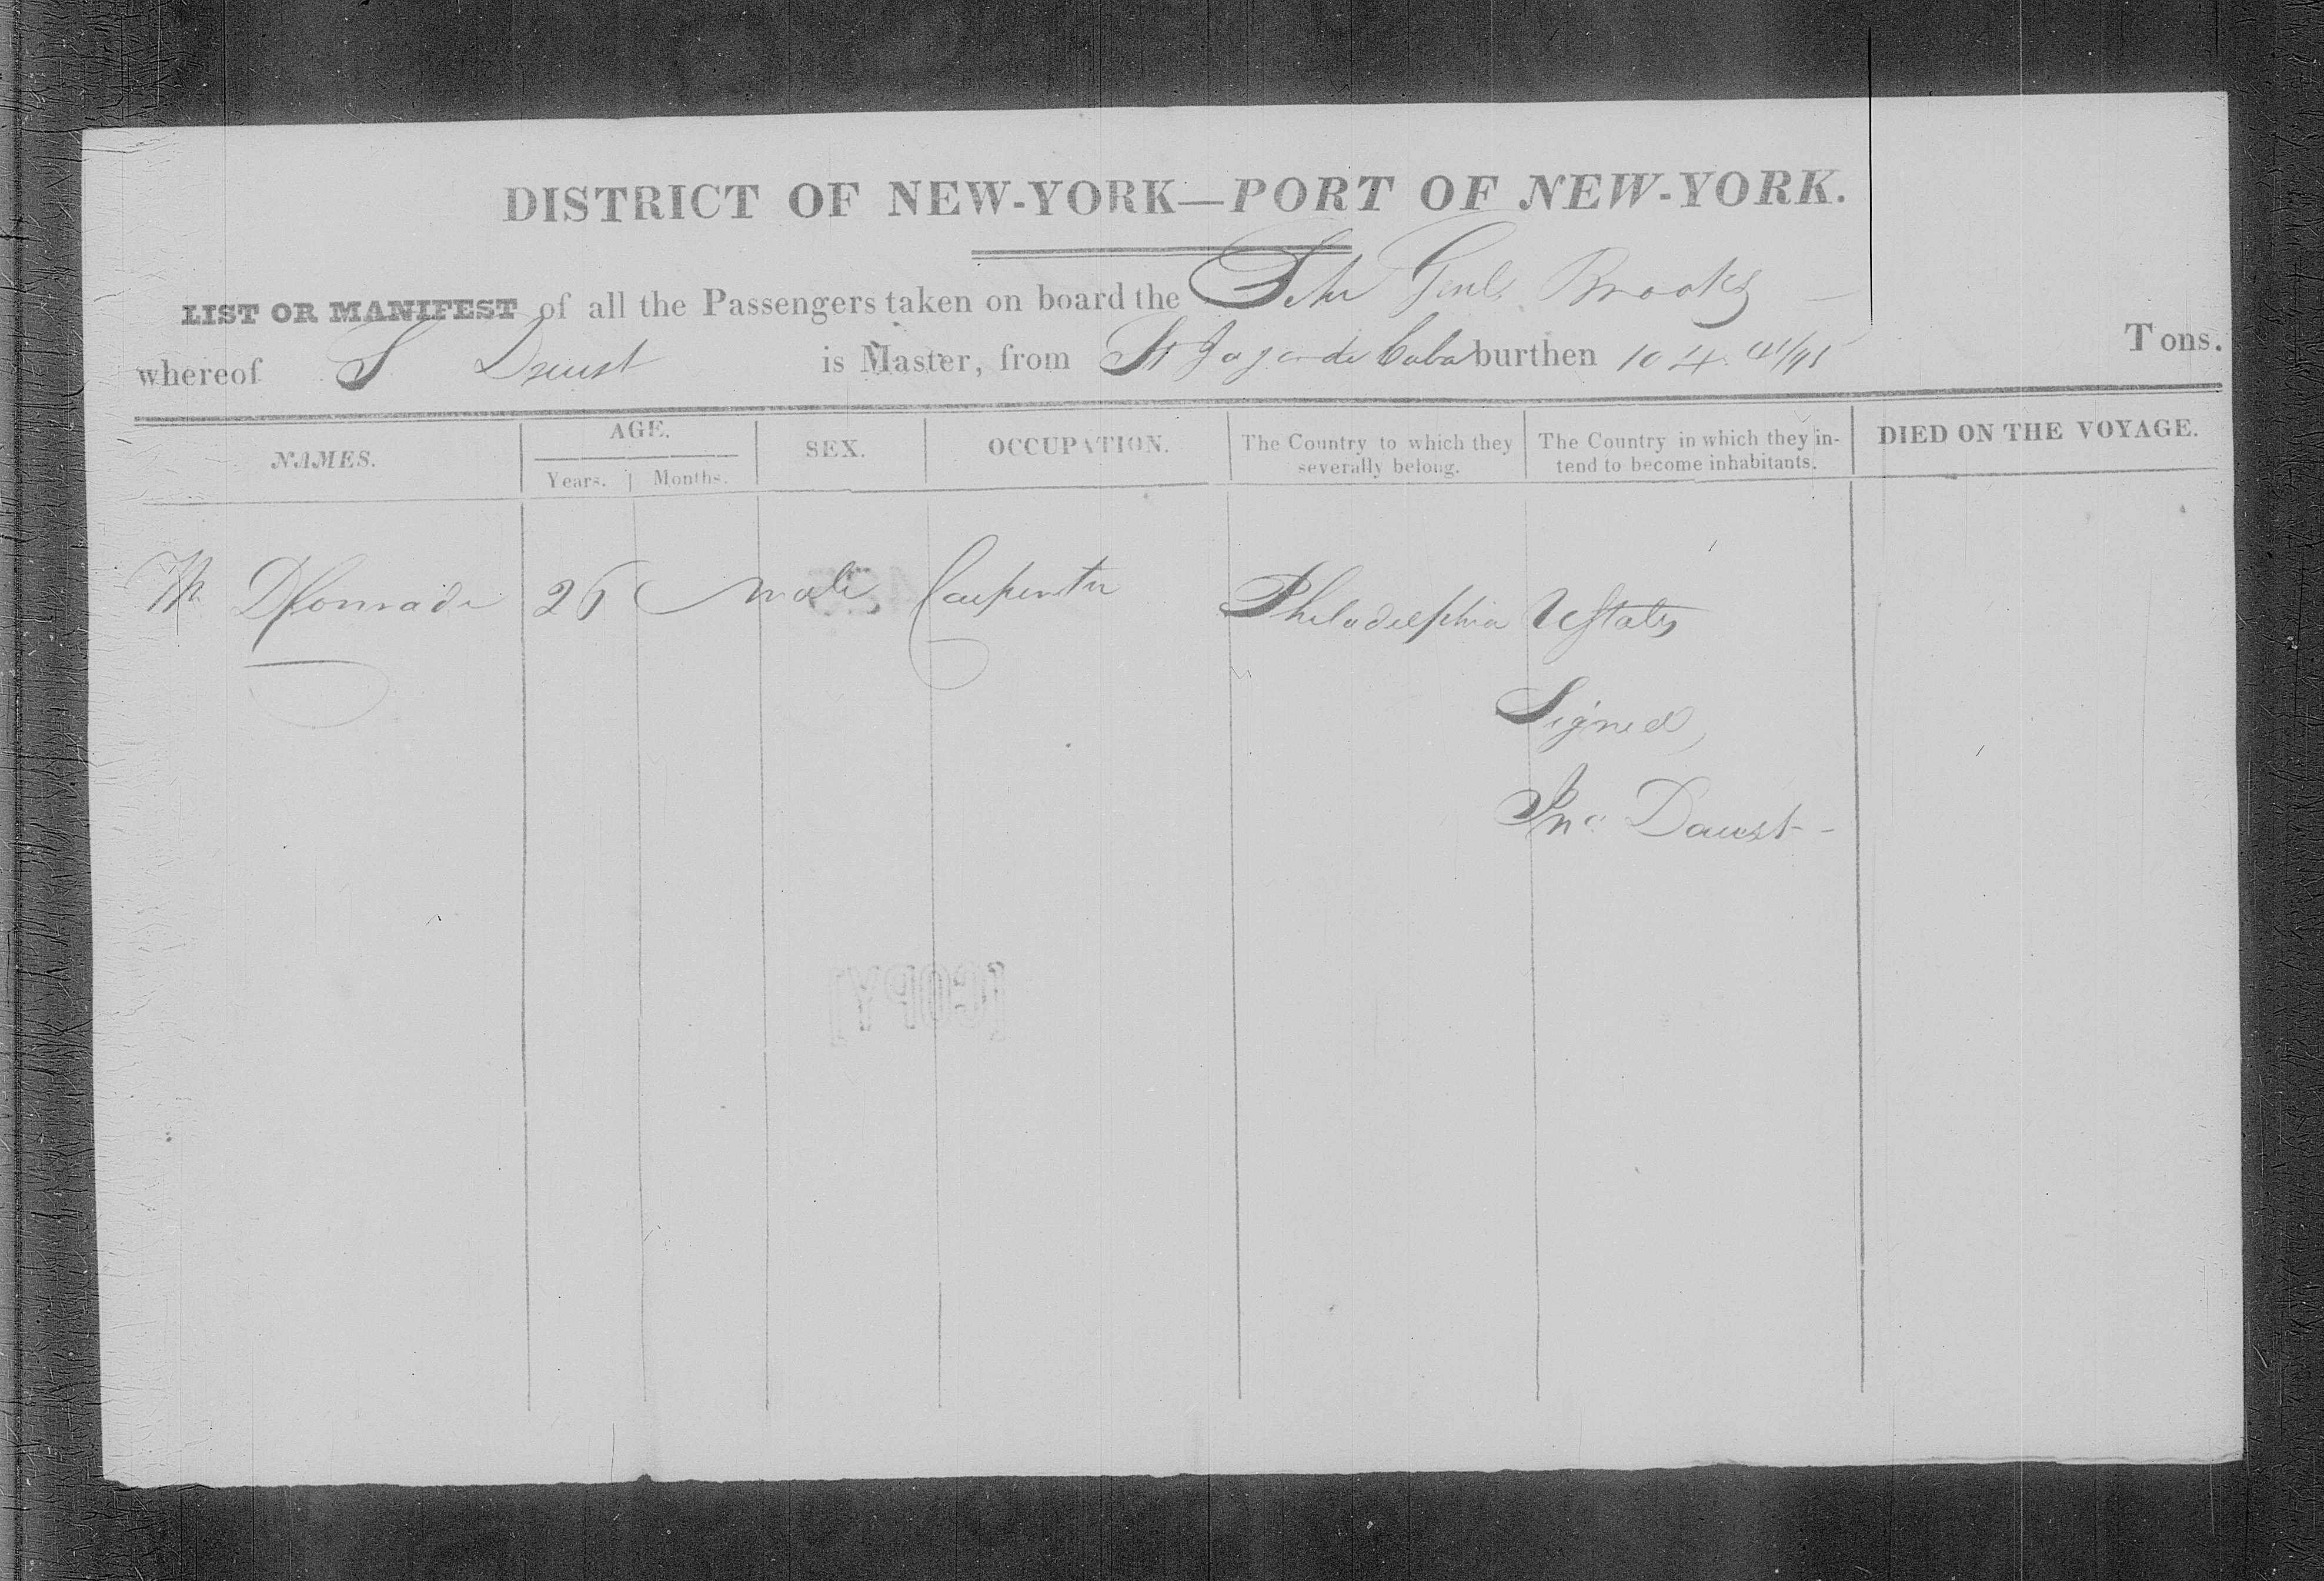 DISTRICT OF NEW-YORK—PORT OF NEW-YORK.
LIST OR MANIFEST of all the Passengers taken on board the Schr Genl Brooks
whereof S is Master, from St Jago de Cuba burthen 104 41/95 Tons.
NAMES. AGE. SEX. OCCUPATION. The Country to which they severally belong. The Country in which they intend to become inhabitants. DIED ON THE VOYAGE.
Years. Months.
26 male Carpenter Philadelphia UStates
Signed,
Jno Daust
[COPY]